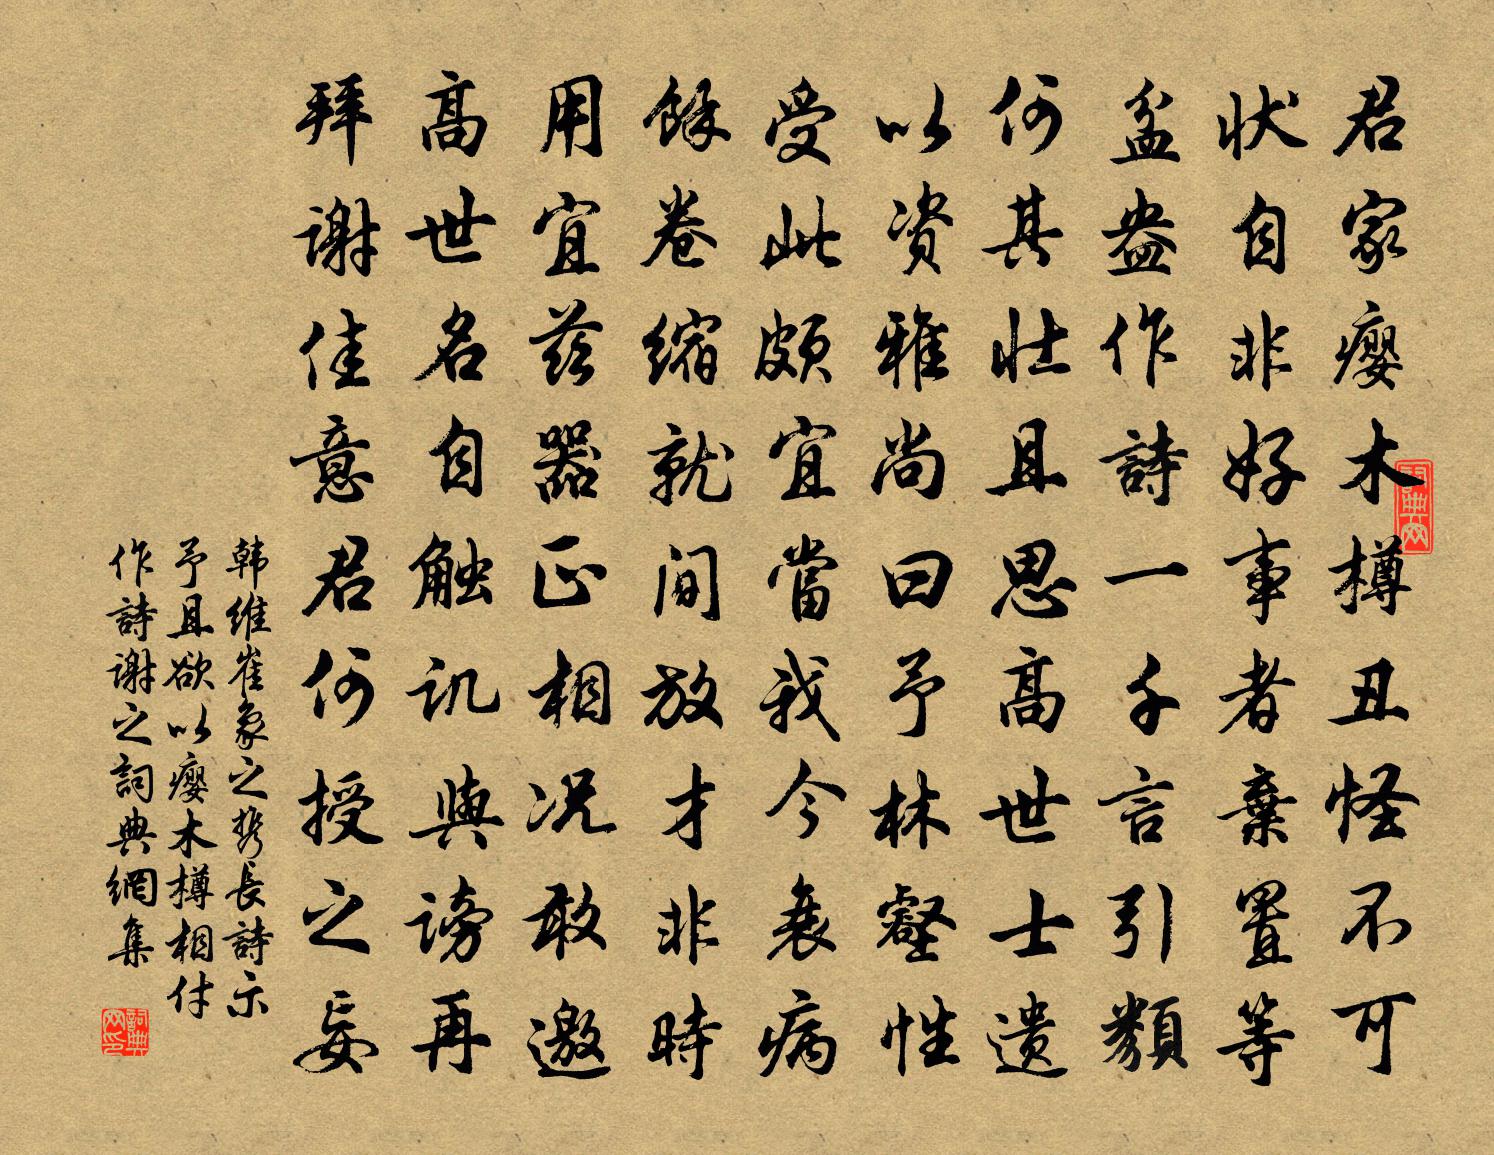 君家瘿木樽丑怪不可
状自非好事者棄置等
盆盎作詩一千言引類
何其壮且思高世士遗
以资雅尚曰予林壑性
受此颇宜當我今衰病
餘卷缩就间放才非時
用宜兹器正相况敢邀
高世名自触讥與谤再
拜谢佳意君何授之妄
韩维崔象之携長詩示
予且欲以瘿木樽相付
作詩谢之詞典網集
詞典网
詞典网印